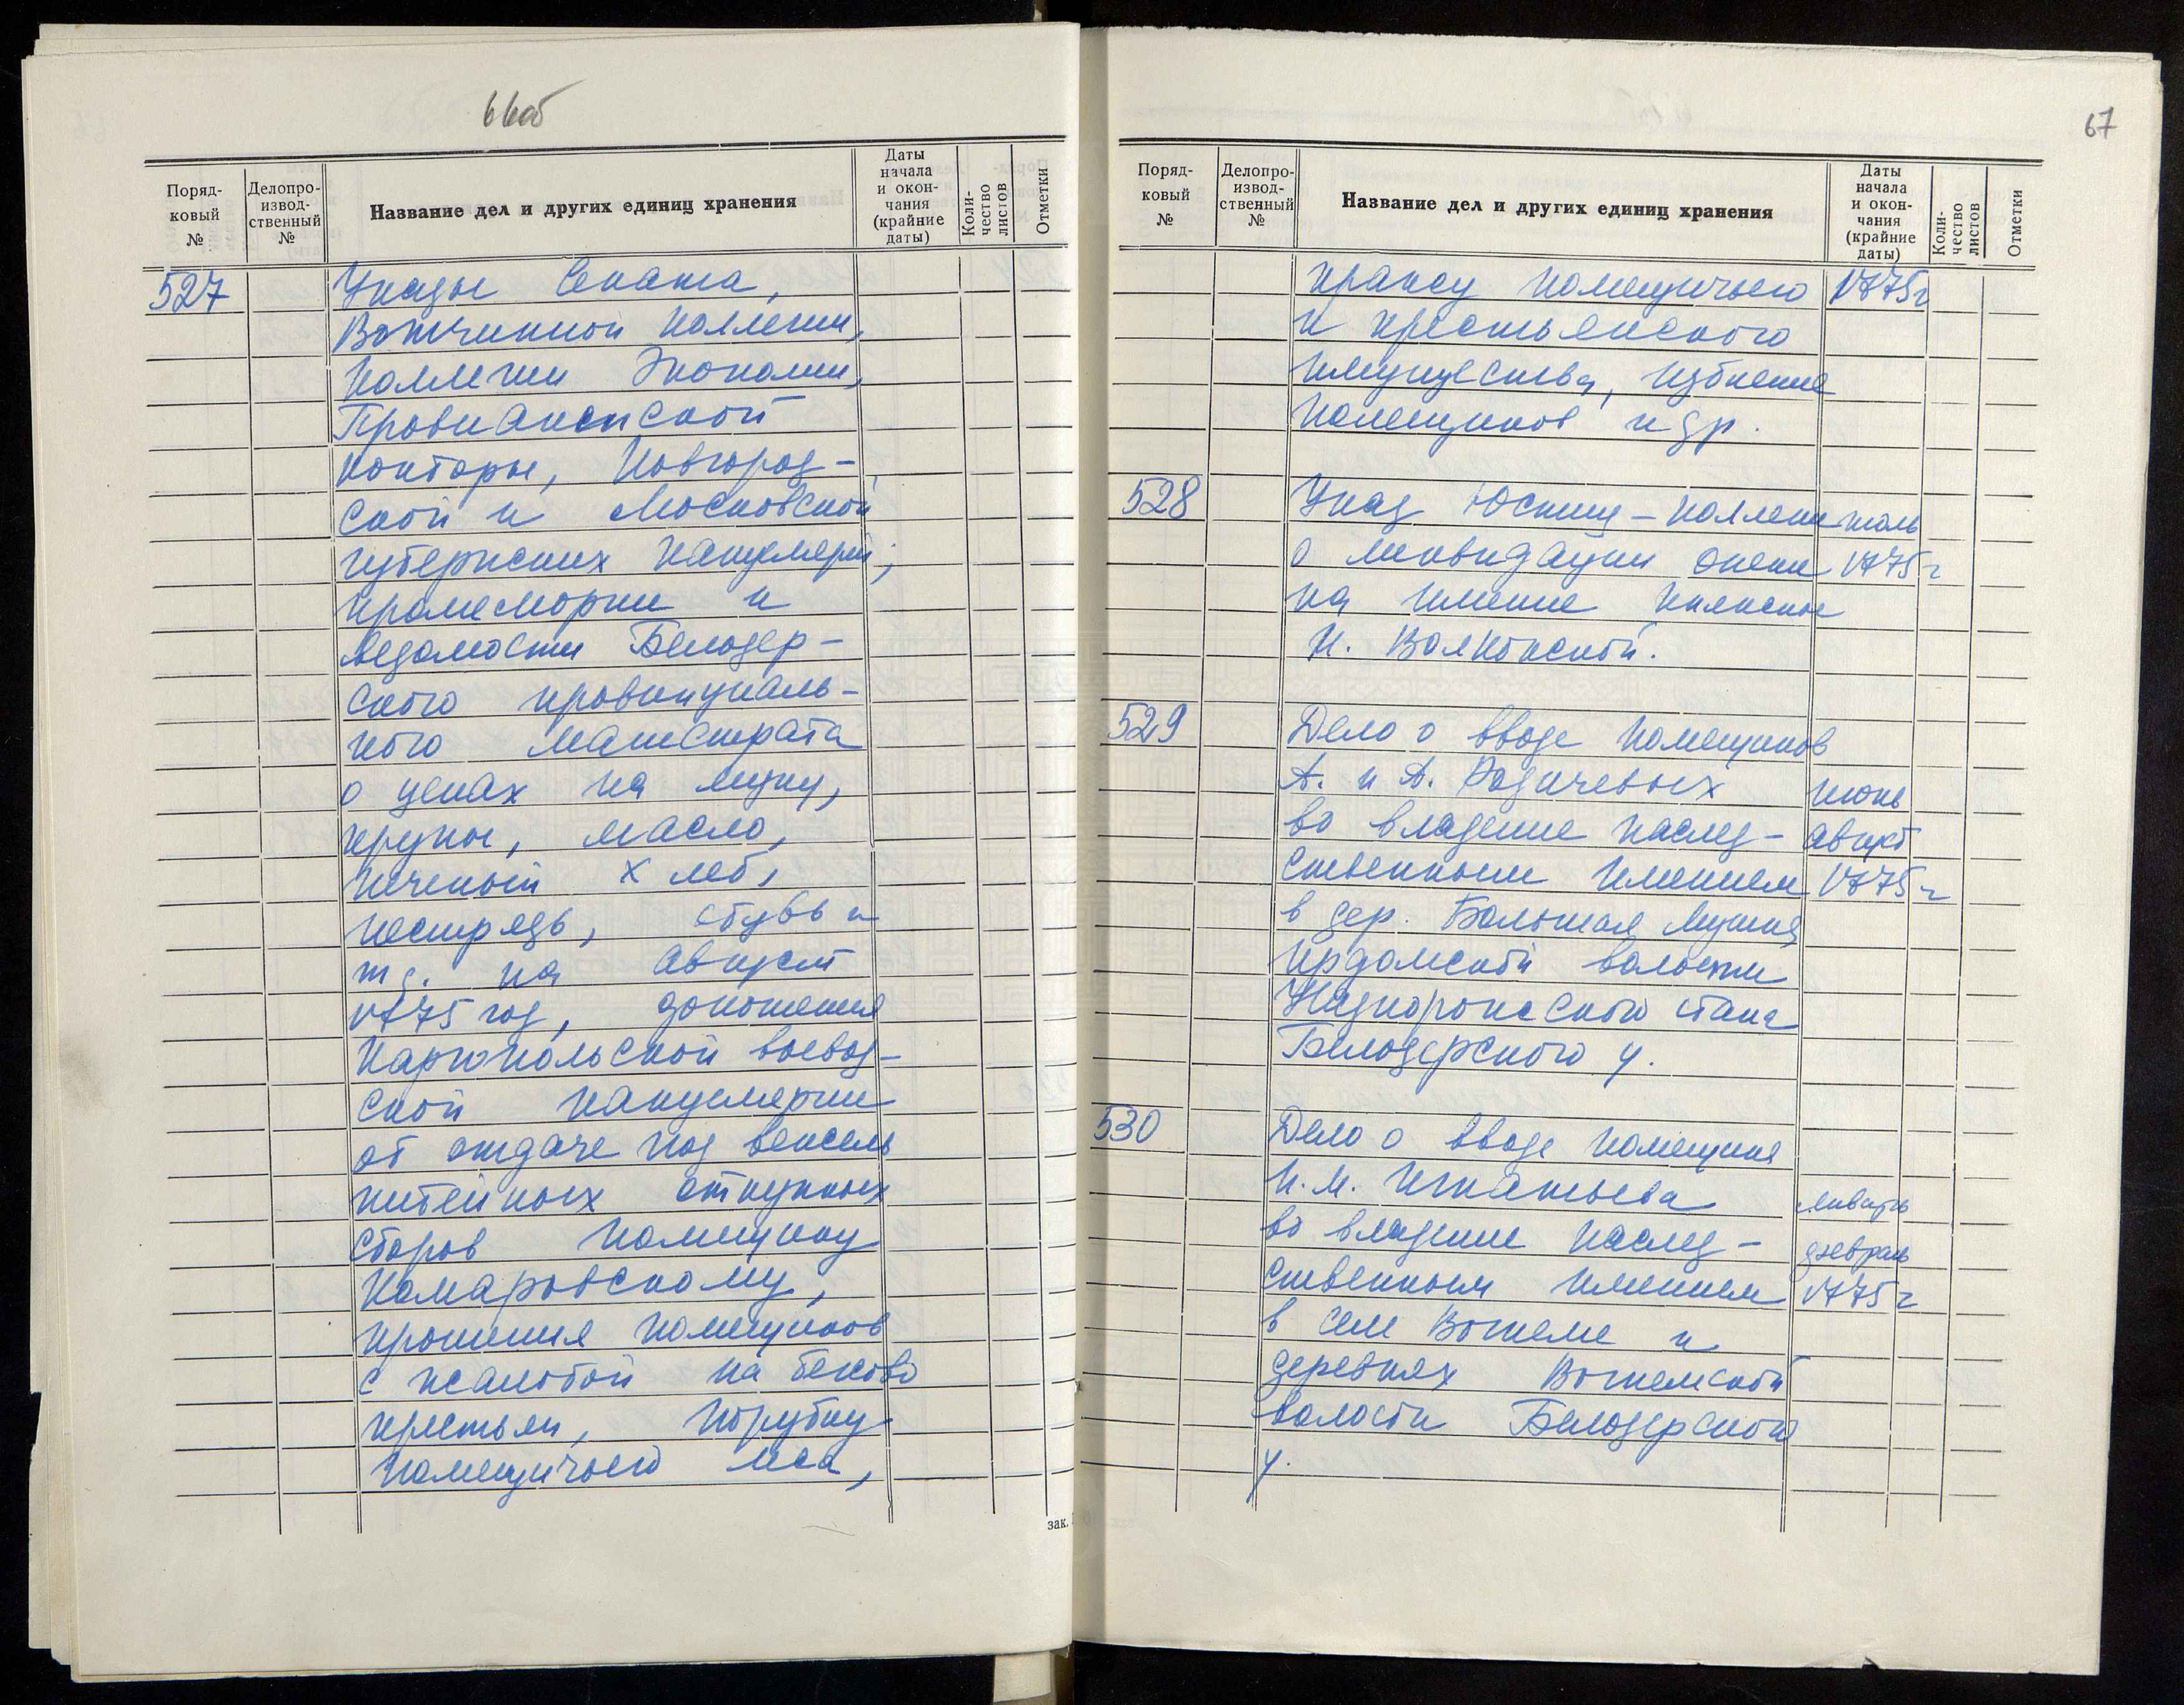 66об
Поряд-
ковый
№
Делопро-
извод-
ственный
№
Название дел и других единиц хранения
Даты
начала
и окон-
чания
(крайние
даты)
Коли-
чество
листов
Отметки
527
Указы Сената,
Вотчинной коллегии,
коллегии Экономии,
Провиантской
конторы, Новгород-
ской и Московской
губернских канцелярий;
промемории и
ведомости Белозер-
ского провинциаль-
ного магистрата
о ценах на муку,
крупы, масло,
печеный хлеб,
пестрядь, обувь и
т д. на август
1775 год, доношения
Каргопольской воевод-
ской канцелярии
об отдаче под вексель
питейных откупных
сборов помещику
Комаровскому,
прошения помещиков
с жалобой на бегство
крестьян, порубку
помещичьего леса,
зак.
67
Поряд-
ковый
№
Делопро-
извод-
ственный
№
Название дел и других единиц хранения
Даты
начала
и окон-
чания
(крайние
даты)
Коли-
чество
листов
Отметки
кражу помещичьего 1775 г
и крестьянского
имущества, избиение
помещиков и др.
528 Указ Юстиц-коллегии июль
о ликвидации опеки 1775 г
на имение княжны
И. Волконской.
529 Дело о вводе помещиков
А. и А. Родичевых июнь
во владение наслед- август
ственным имением 1775 г
в дер. Большая Мушня
Ирдомской волости
Надпорожского стана
Белозерского у.
530 Дело о вводе помещика
И. М. Игнатьева январь
во владение наслед- февраль
ственным имением 1775 г
в селе Вогнеме и
деревнях Вогнемской
волости Белозерского
у.